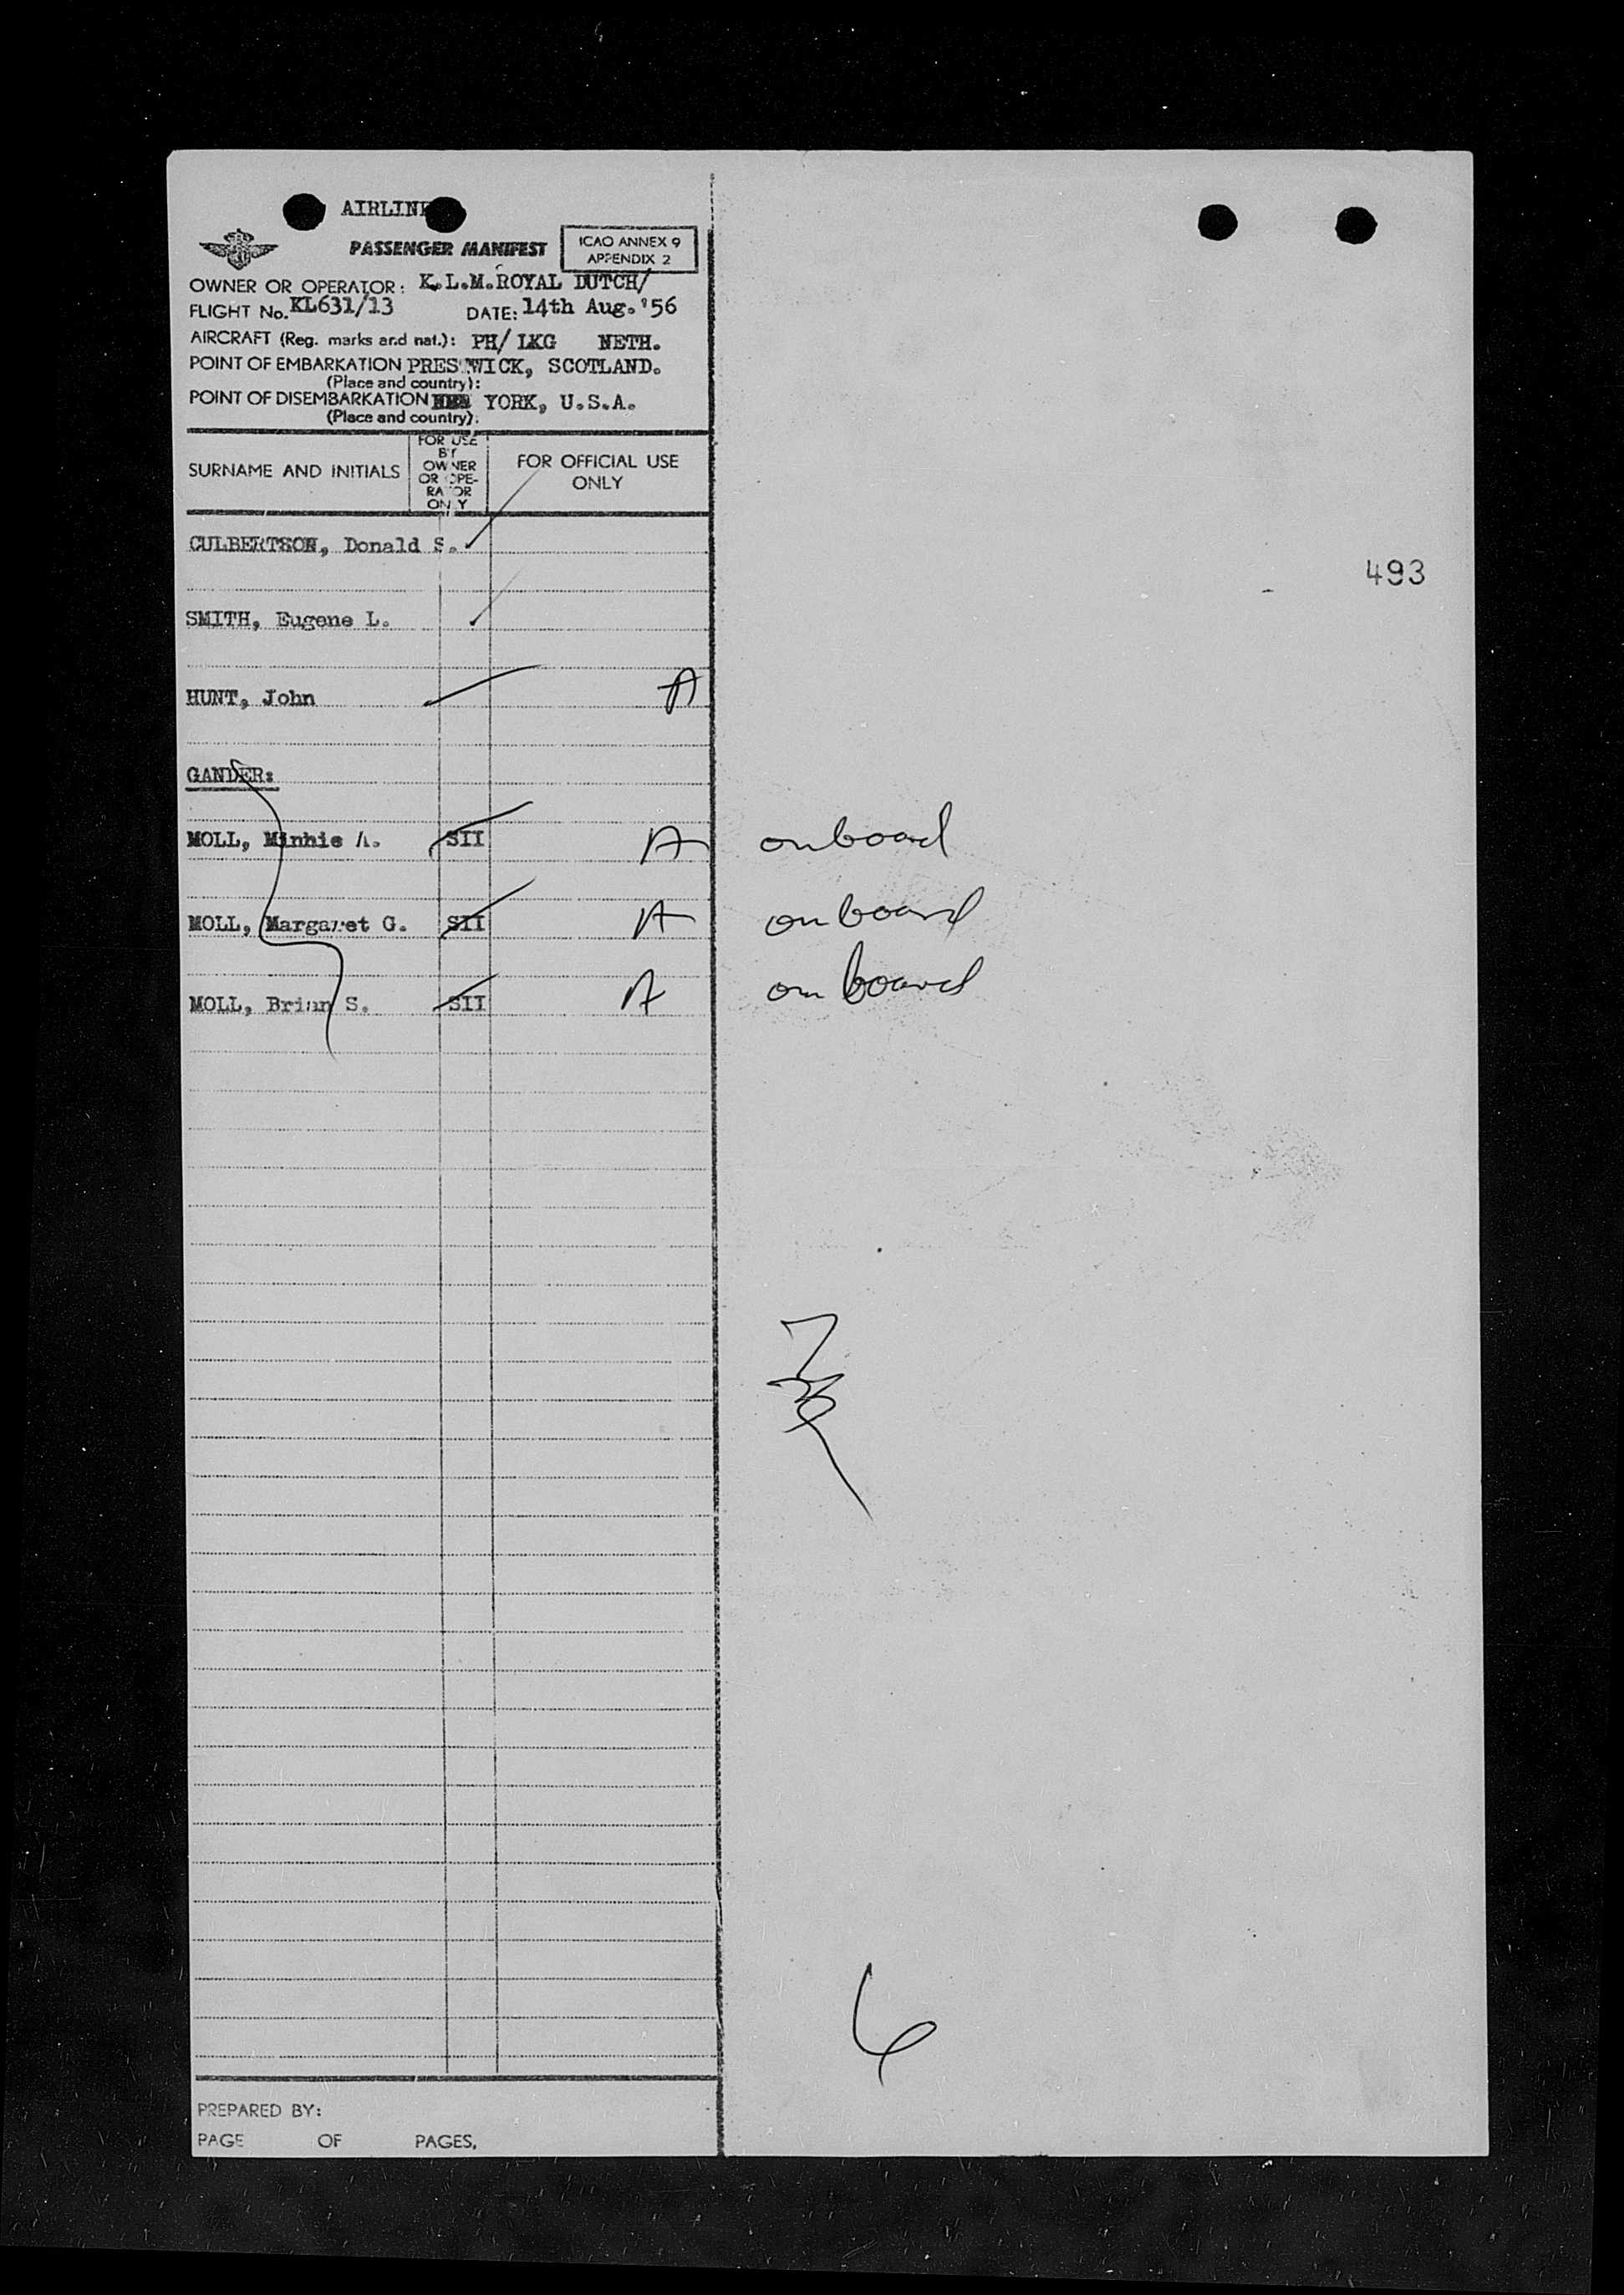 AIRLINE
PASSENGER MANIFEST
ICAO ANNEX 9
APPENDIX 2
OWNER OR OPERATOR: K.L.M. ROYAL DUTCH/
FLIGHT No. KL631/13 DATE: 14th Aug. '56
AIRCRAFT (Reg. marks and nat.): PH/ LKG NETH.
POINT OF EMBARKATION PRESTWICK, SCOTLAND.
(Place and country):
POINT OF DISEMBARKATION NEW YORK, U.S.A.
(Place and country):
SURNAME AND INITIALS
FOR USE
BY
OWNER
OR OPE-
RATOR
ONLY
FOR OFFICIAL USE
ONLY
CULBERTSON, Donald S.
493
SMITH, Eugene L.
HUNT, John A
GANDER:
MOLL, Minnie A. SII A onboad
MOLL, Margaret G. SII A on board
MOLL, Brian S. SII A on board
6
PREPARED BY:
PAGE OF PAGES,